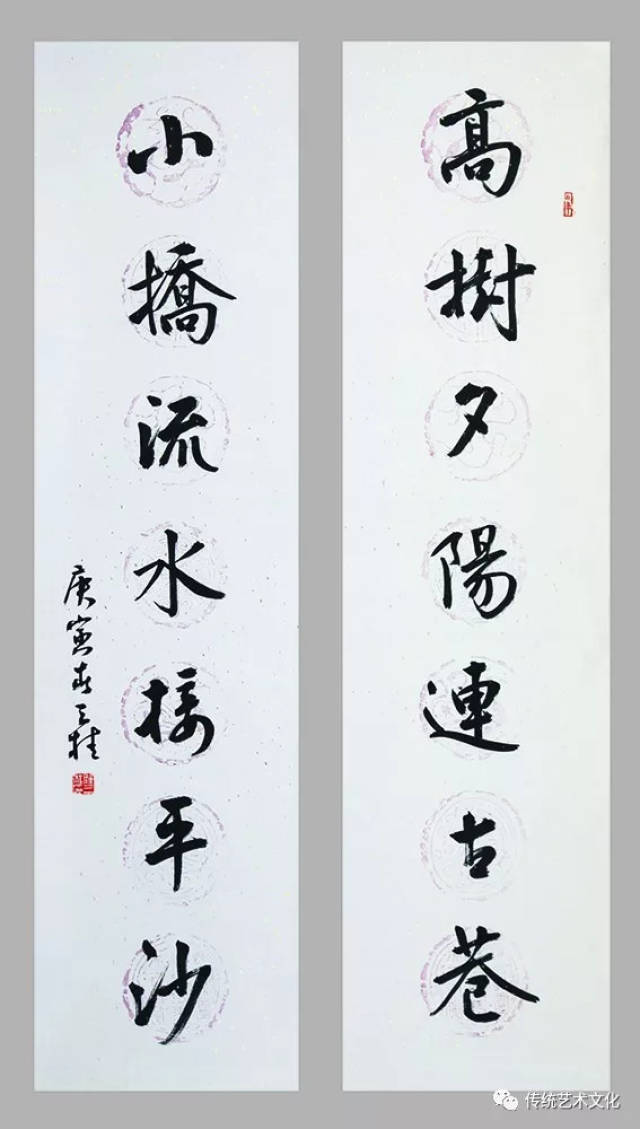 高樹夕陽連古巷
小橋流水接平沙
庚寅春
传统艺术文化